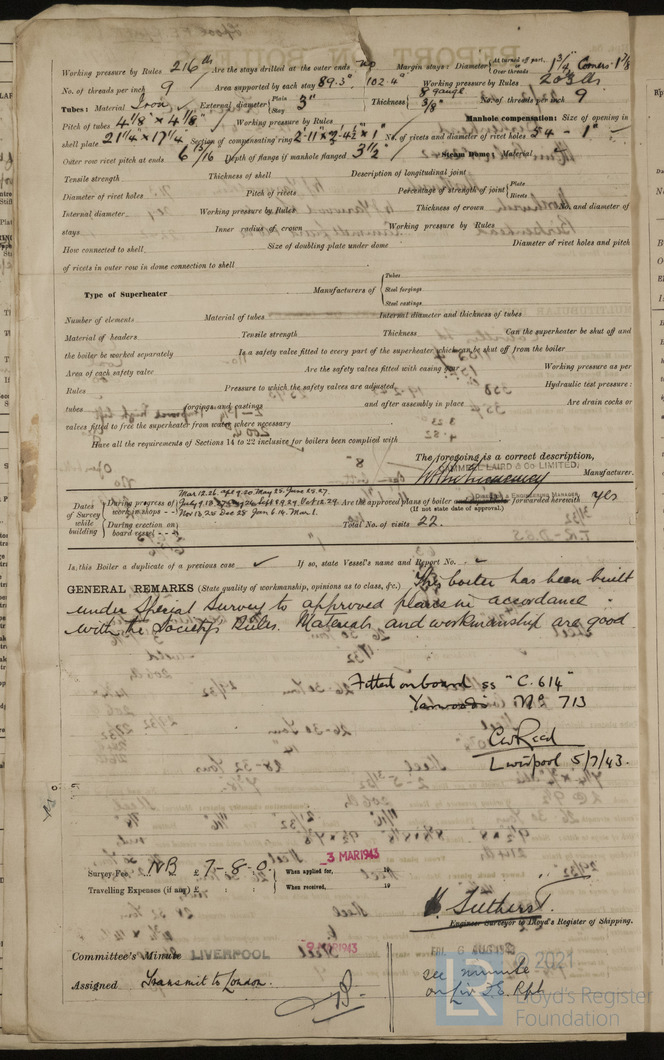 Working pressure by Rules 216 lb Are the stays drilled at the outer ends no Margin stays: Diameter { At turned off part, or Over threads 1 3/4" Corners 1 7/8
No. of threads per inch 9 Area supported by each stay 89.3" 102.4" Working pressure by Rules
Tubes: Material Iron External diameter { Plain Stay 3" Thickness { 8 gauge 3/8" No. of threads per inch 9
Pitch of tubes 4 1/8" x 4 1/8" Working pressure by Rules Manhole compensation: Size of opening in
shell plate 21 1/4" x 17 1/4 Section of compensating ring 2'-11" x 2'-4 1/2" x 1" No. of rivets and diameter of rivet holes 54 - 1"
Outer row rivet pitch at ends 6 13/16 Depth of flange if manhole flanged 3 1/2" Steam Dome: Material
Tensile strength Thickness of shell Description of longitudinal joint
Diameter of rivet holes Pitch of rivets Percentage of strength of joint { Plate Rivets
Internal diameter Working pressure by Rules Thickness of crown No. and diameter of
stays Inner radius of crown Working pressure by Rules
How connected to shell Size of doubling plate under dome Diameter of rivet holes and pitch
of rivets in outer row in dome connection to shell
Type of Superheater Manufacturers of { Tubes Steel forgings Steel castings
Number of elements Material of tubes Internal diameter and thickness of tubes
Material of headers Tensile strength Thickness Can the superheater be shut off and
the boiler be worked separately Is a safety valve fitted to every part of the superheater which can be shut off from the boiler
Area of each safety valve Are the safety valves fitted with easing gear Working pressure as per
Rules Pressure to which the safety valves are adjusted Hydraulic test pressure:
tubes forgings and castings and after assembly in place Are drain cocks or
valves fitted to free the superheater from water where necessary
Have all the requirements of Sections 14 to 22 inclusive for boilers been complied with
The foregoing is a correct description,
CAMMELL LAIRD & CO LIMITED. Manufacturer.
DIRECTOR & ENGINEERING MANAGER
Dates of Survey while building { During progress of work in shops - - Mar 12.26. Apl 9.20 May 28. June 25.27.
Nov 13.24 Dec 28 Jan 6.14. Mar 1. Are the approved plans of boiler forwarded herewith yes
(If not state date of approval.)
During erection on board vessel - - - Total No. of visits 22.
Is this Boiler a duplicate of a previous case ✓ If so, state Vessel's name and Report No. ✓
GENERAL REMARKS (State quality of workmanship, opinions as to class, &c.) This boiler has been built
under Special Survey to approved plans in accordance
with the Society's Rules. Materials and workmanship are good
Fitted on board ss "C.614"
Yarwoods No 713
CW Reed
Liverpool 5/7/43.
Survey Fee NB £ 7 - 8 - 0 When applied for, 3 MAR 1943 19
Travelling Expenses (if any) £ : : When received, 19
Engineer Surveyor to Lloyd's Register of Shipping.
Committee's Minute LIVERPOOL 9 MAR 1943 FRI 6 AUG 1943
Assigned Transmit to London. see minute
on Liv F.E. Rpt
© 2021
LR Lloyd's Register
Foundation